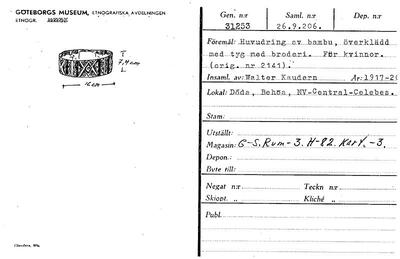 GÖTEBORGS MUSEUM, ETNOGRAFISKA AVDELNINGEN
ETNOGR.
T
7,4 mm
L
16 cm
Gen. n:r Saml. n:r Dep. n:r
31253 26.9.206.
Föremål: Huvudring av bambu, överklädd
med tyg med broderi. För kvinnor.
(orig. nr 2141).
Insaml. av: Walter Kaudern År: 1917-20
Lokal: Döda, Behöa, NV-Central-Celebes.
Stam:
Utställt:
Magasin: G-S. Rum-3. H-82. Kart.-3.
Depon.:
Byte till:
Negat n:r Teckn n:r
Skiopt. „ Kliché „
Publ.